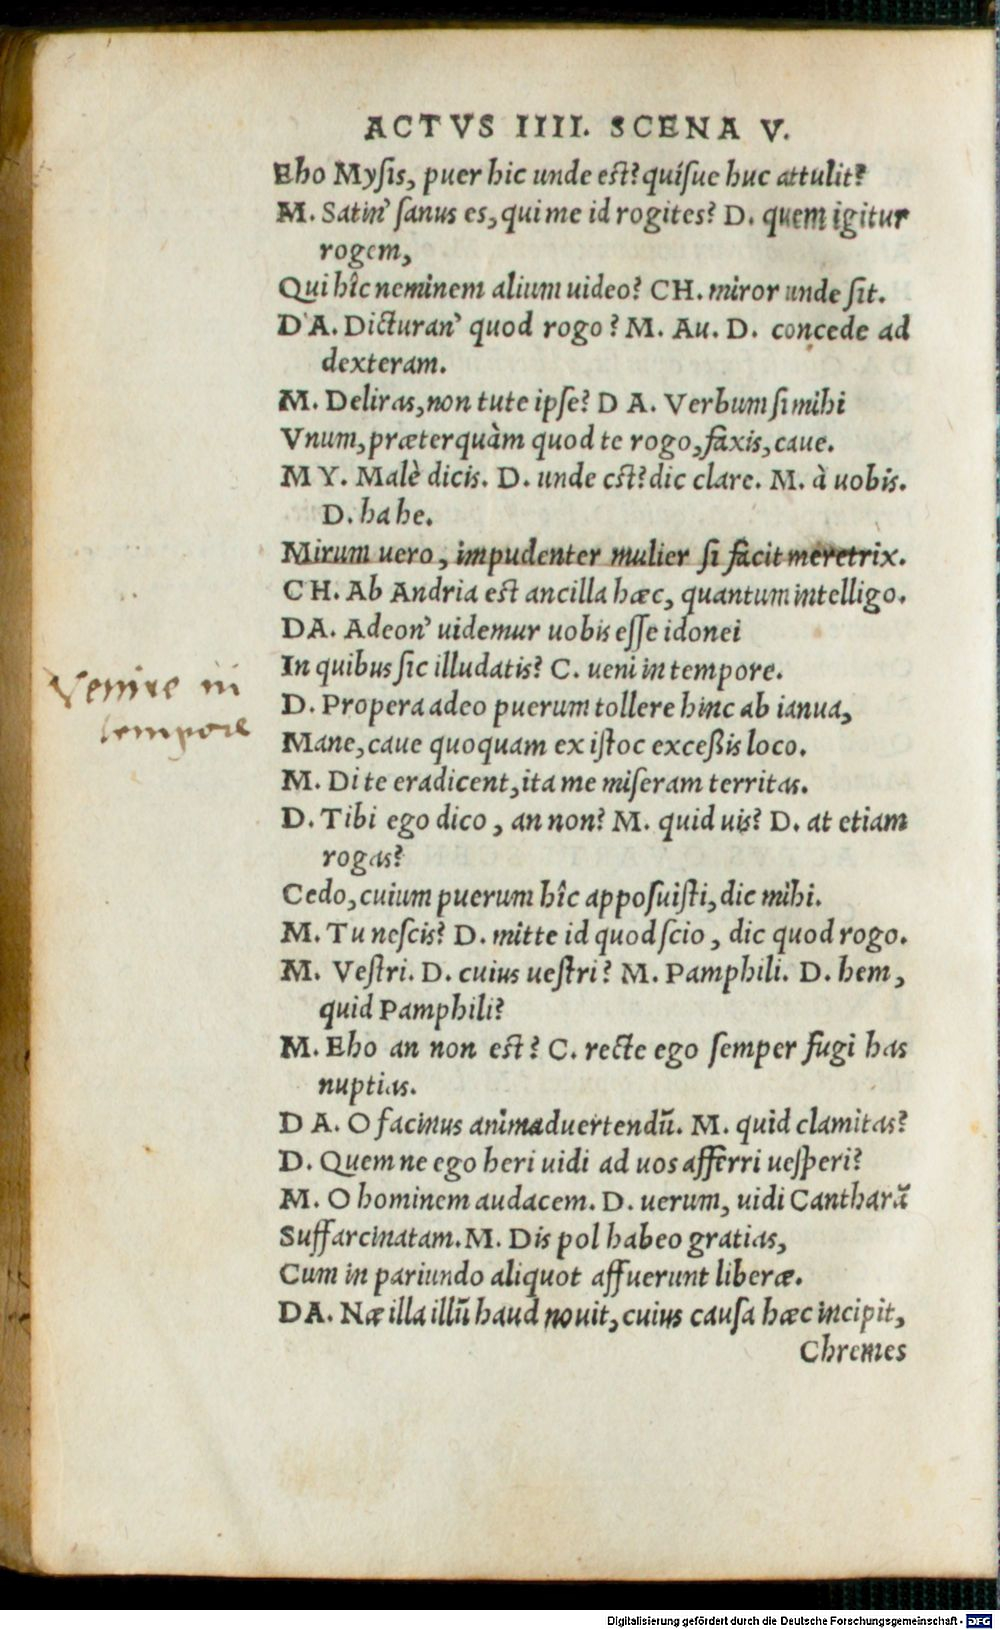 ACTVS IIII. SCENA V.
Eho Mysis, puer hic unde est? quisue huc attulit?
M. Satin' sanus es, qui me id rogites? D. quem igitur
rogem,
Qui hîc neminem alium uideo? CH. miror unde sit.
DA. Dicturan' quod rogo? M. Au. D. concede ad
dexteram.
M. Deliras, non tute ipse? DA. Verbum si mihi
Vnum, præterquàm quod te rogo, faxis, caue.
MY. Malè dicis. D. unde est? dic clare. M. à uobis.
D. ha he.
Mirum uero, impudenter mulier si facit meretrix.
CH. Ab Andria est ancilla hæc, quantum intelligo.
DA. Adeon' uidemur uobis esse idonei
In quibus sic illudatis? C. ueni in tempore.
Venire in
tempore
D. Propera adeo puerum tollere hinc ab ianua,
Mane, caue quoquam ex istoc exceßis loco.
M. Di te eradicent, ita me miseram territas.
D. Tibi ego dico, an non? M. quid uis? D. at etiam
rogas?
Cedo, cuium puerum hîc apposuisti, dic mihi.
M. Tu nescis? D. mitte id quod scio, dic quod rogo.
M. Vestri. D. cuius uestri? M. Pamphili. D. hem,
quid Pamphili?
M. Eho an non est? C. recte ego semper fugi has
nuptias.
DA. O facinus animaduertendū. M. quid clamitas?
D. Quem ne ego heri uidi ad uos afferri uesperi?
M. O hominem audacem. D. uerum, uidi Cantharā
Suffarcinatam. M. Dis pol habeo gratias,
Cum in pariundo aliquot affuerunt liberæ.
DA. Næ illa illū haud nouit, cuius causa hæc incipit,
Chremes
Digitalisierung gefördert durch die Deutsche Forschungsgemeinschaft - DFG